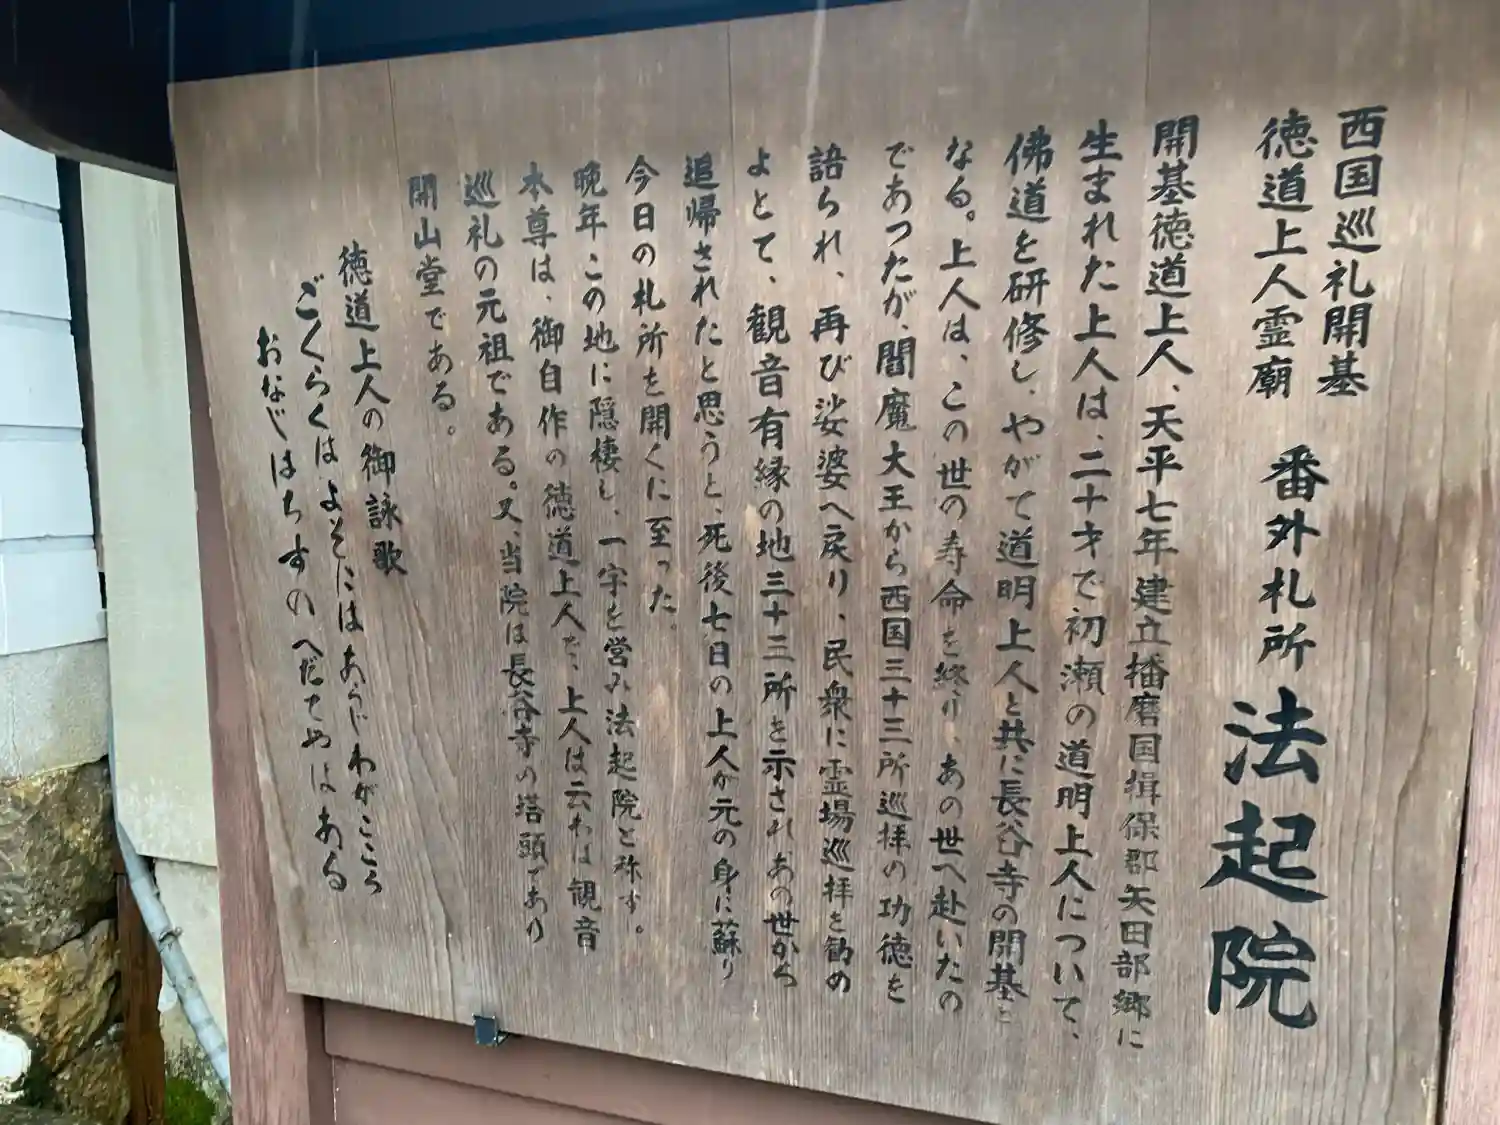 西国巡礼開基
徳道上人霊廟 番外札所 法起院
開基徳道上人、天平七年建立播磨国揖保郡矢田部郷に
生まれた上人は、二十才で初瀬の道明上人について、
佛道を研修し、やがて道明上人と共に長谷寺の開基と
なる。上人は、この世の寿命を終り、あの世へ赴いたの
であつたが、閻魔大王から西国三十三所巡拝の功徳を
語られ、再び娑婆へ戻り、民衆に霊場巡拝を勧め
よとて、観音有縁の地三十三所を示され、あの世から
追帰されたと思うと、死後七日の上人が元の身に蘇り
今日の札所を開くに至った。
晩年この地に隠棲し、一宇を営み法起院と称す。
本尊は、御自作の徳道上人で、上人は云わは観音
巡礼の元祖である。又、当院は長谷寺の塔頭であり
開山堂である。
徳道上人の御詠歌
ごくらくはよそにはあらじわがこころ
おなじはちすのへだてやはある